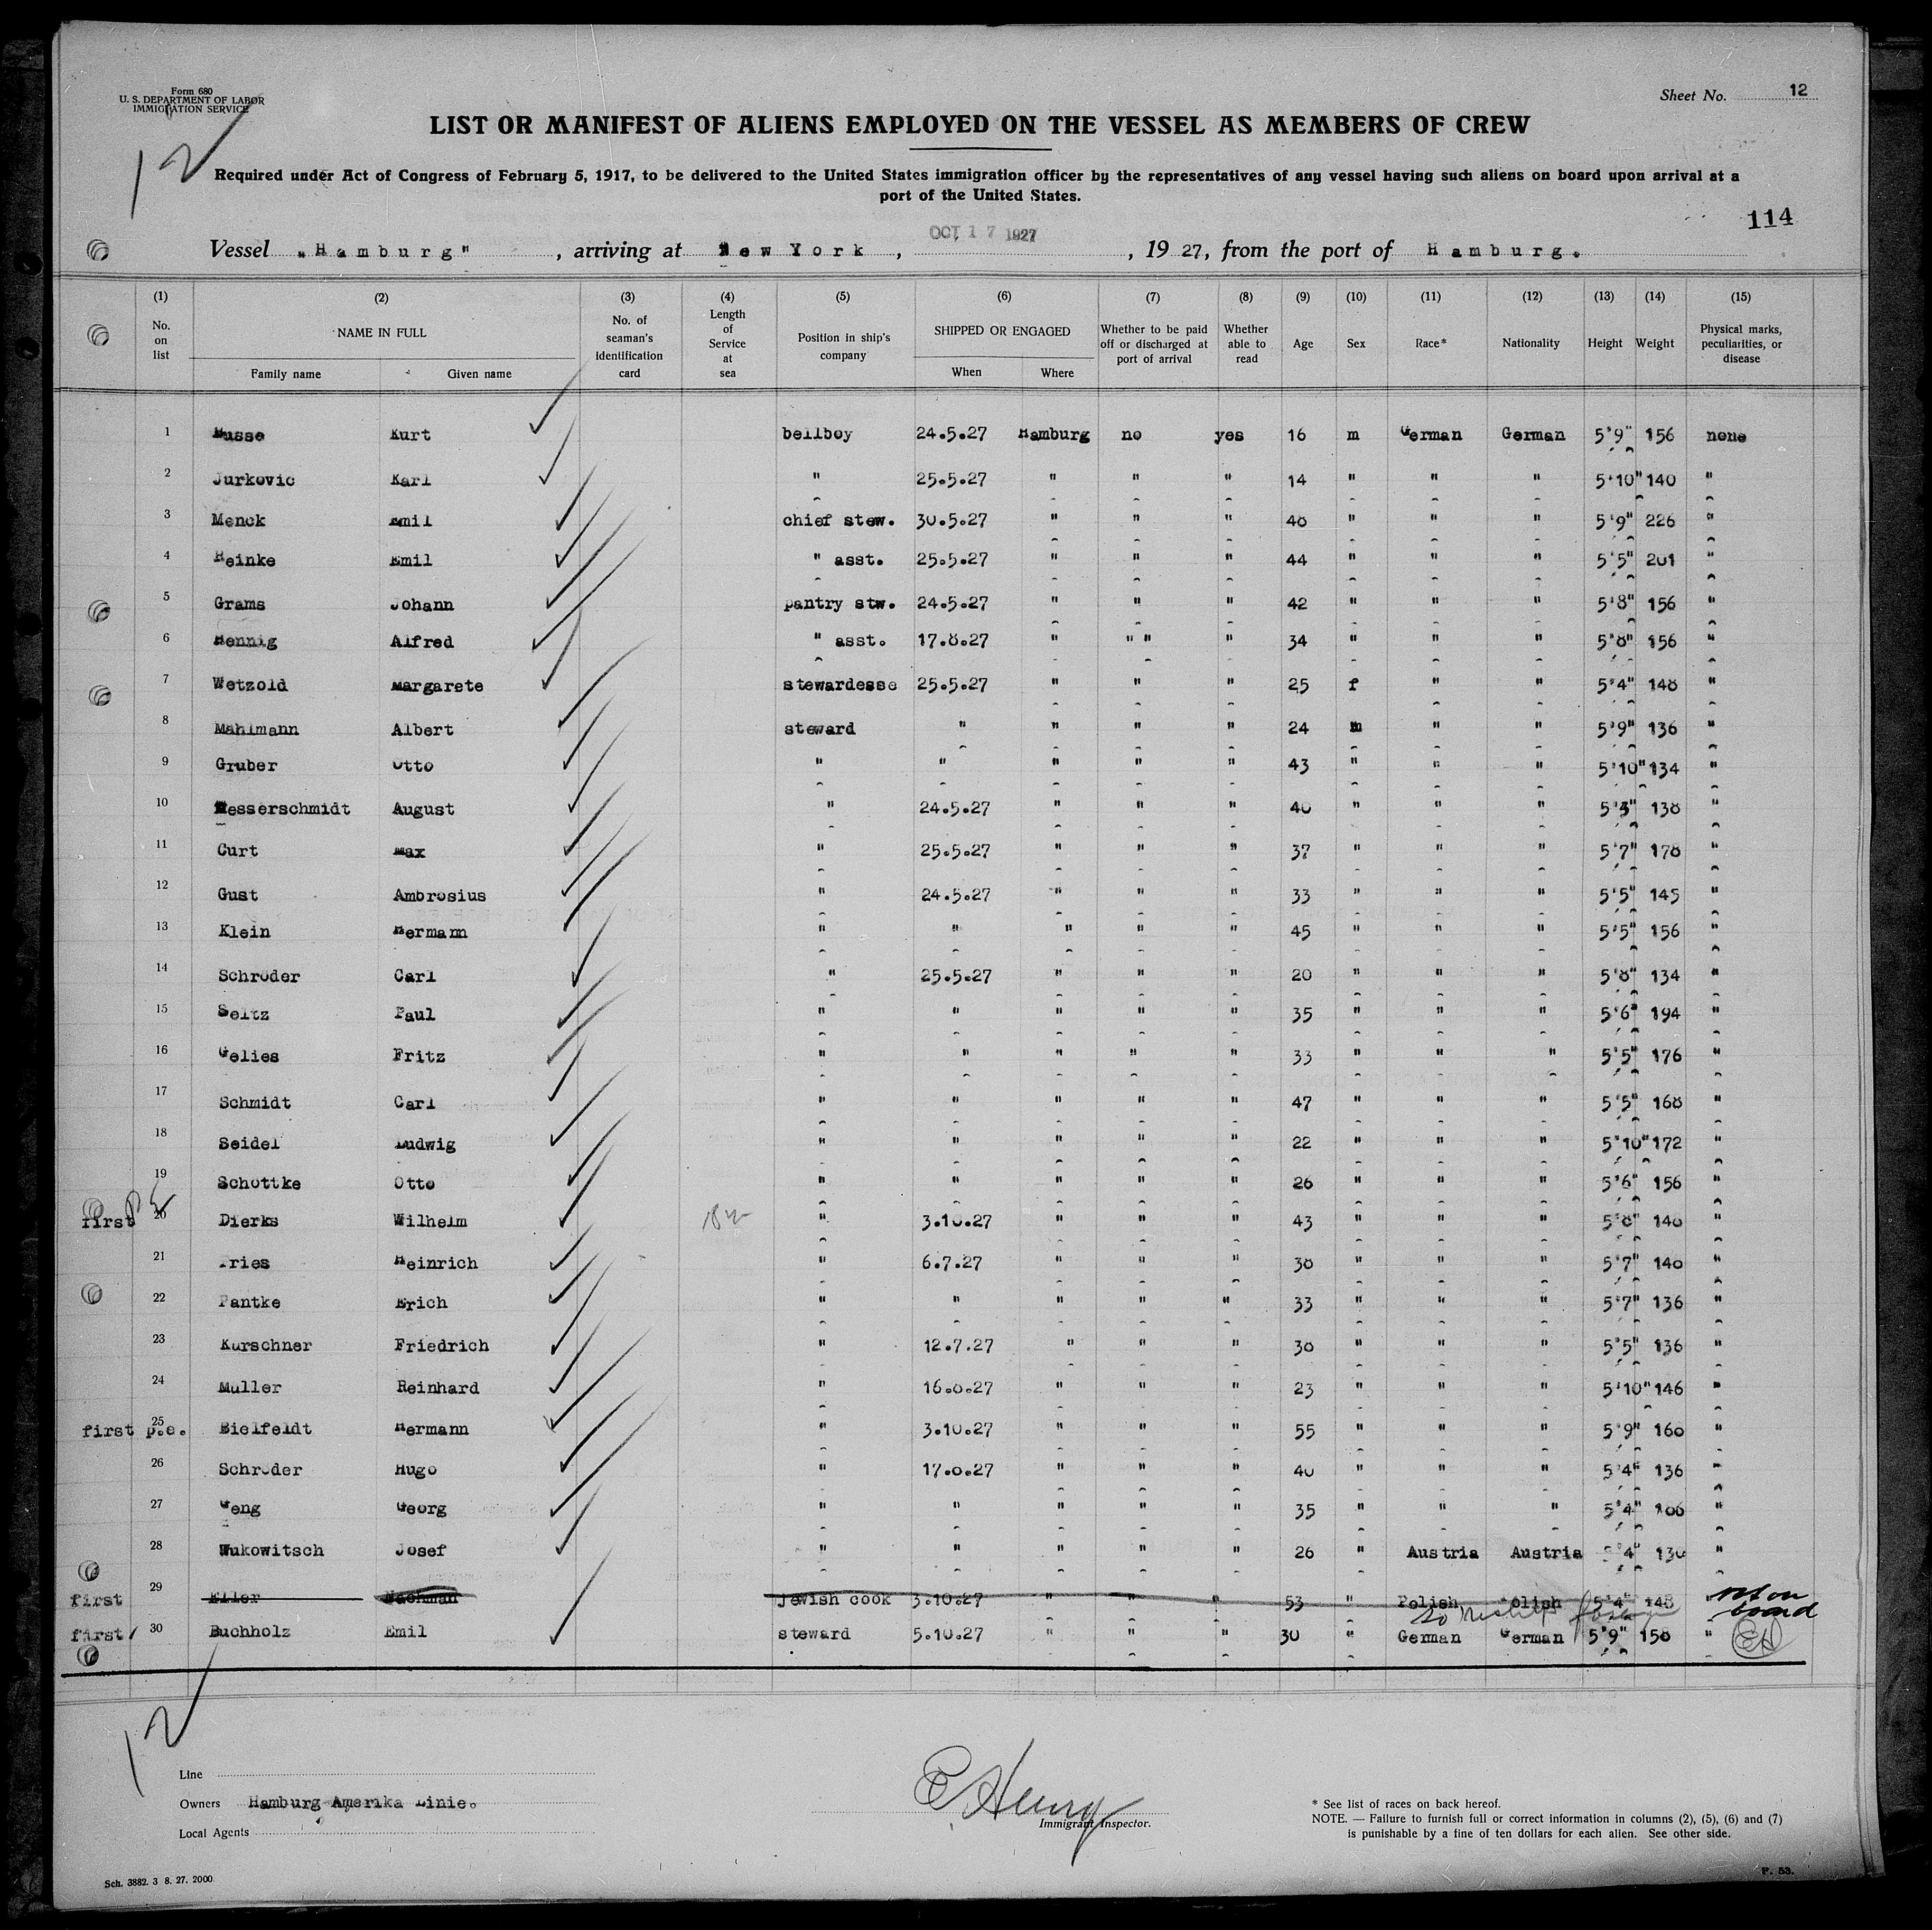 Form 680
U. S. DEPARTMENT OF LABOR
IMMIGRATION SERVICE
Sheet No. 12
12
LIST OR MANIFEST OF ALIENS EMPLOYED ON THE VESSEL AS MEMBERS OF CREW
Required under Act of Congress of February 5, 1917, to be delivered to the United States immigration officer by the representatives of any vessel having such aliens on board upon arrival at a
port of the United States.
114
Vessel "Hamburg", arriving at New York, OCT 17 1927, 1927, from the port of Hamburg.
(1) (2) (3) (4) (5) (6) (7) (8) (9) (10) (11) (12) (13) (14) (15)
No. on list NAME IN FULL Family name Given name No. of seaman's identification card Length of Service at sea Position in ship's company SHIPPED OR ENGAGED When Where Whether to be paid off or discharged at port of arrival Whether able to read Age Sex Race* Nationality Height Weight Physical marks, peculiarities, or disease
1 Kurt bellboy 24.5.27 Hamburg no yes 16 m German German 5'9" 156 none
2 Jurkovic Karl " 25.5.27 " " " 14 " " " 5'10" 140 "
3 Menck Emil chief stew. 30.5.27 " " " 48 " " " 5'9" 226 "
4 Reinke Emil " asst. 25.5.27 " " " 44 " " " 5'5" 201 "
5 Grams Johann pantry stw. 24.5.27 " " " 42 " " " 5'8" 156 "
6 Hennig Alfred " asst. 17.8.27 " " " " 34 " " " 5'8" 156 "
7 Wetzold Margarete stewardesse 25.5.27 " " " 25 f " " 5'4" 148 "
8 Mahlmann Albert steward " " " " 24 m " " 5'9" 136 "
9 Gruber Otto " " " " " 43 " " " 5'10" 134 "
10 Messerschmidt August " 24.5.27 " " " 40 " " " 138 "
11 Curt Max " 25.5.27 " " " 37 " " " 5'7" 178 "
12 Gust Ambrosius " 24.5.27 " " " 33 " " " 5'5" 145 "
13 Klein Hermann " " " " " 45 " " " 5'5" 156 "
14 Schröder Carl " 25.5.27 " " " 20 " " " 5'8" 134 "
15 Seltz Paul " " " " " 35 " " " 5'6" 194 "
16 Gelies Fritz " " " " " 33 " " " 5'5" 176 "
17 Schmidt Carl " " " " " 47 " " " 5'5" 168 "
18 Seidel Ludwig " " " " " 22 " " " 5'10" 172 "
19 Schottke Otto " " " " " 26 " " " 5'6" 156 "
first 20 Dierks Wilhelm " 3.10.27 " " " 43 " " " 5'8" 140 "
21 Heinrich " 6.7.27 " " " 38 " " " 5'7" 140 "
22 Pantke Erich " " " " " 33 " " " 5'7" 136 "
23 Kurschner Friedrich " 12.7.27 " " " 30 " " " 5'5" 136 "
24 Muller Reinhard " 16.8.27 " " " 23 " " " 5'10" 146 "
first p.e. 25 Bielfeldt Hermann " 3.10.27 " " " 55 " " " 5'9" 160 "
26 Schroder Hugo " 17.8.27 " " " 40 " " " 5'4" 136 "
27 Geng Georg " " " " " 35 " " " 5'4" "
28 Wukowitsch Josef " " " " " 26 " Austria Austria 5'4" 130 "
first 29 Eller Nachman Jewish cook 3.10.27 " " " 53 " Polish Polish 5'4" 148 not on board
first 30 Buchholz Emil steward 5.10.27 " " " 30 " German German 5'9" 158 " EH
12
Line
Owners Hamburg Amerika Linie.
Local Agents
E. Henry
Immigrant Inspector.
* See list of races on back hereof.
NOTE. — Failure to furnish full or correct information in columns (2), (5), (6) and (7)
is punishable by a fine of ten dollars for each alien. See other side.
Sch. 3882. 3 8. 27. 2000
P. 53.